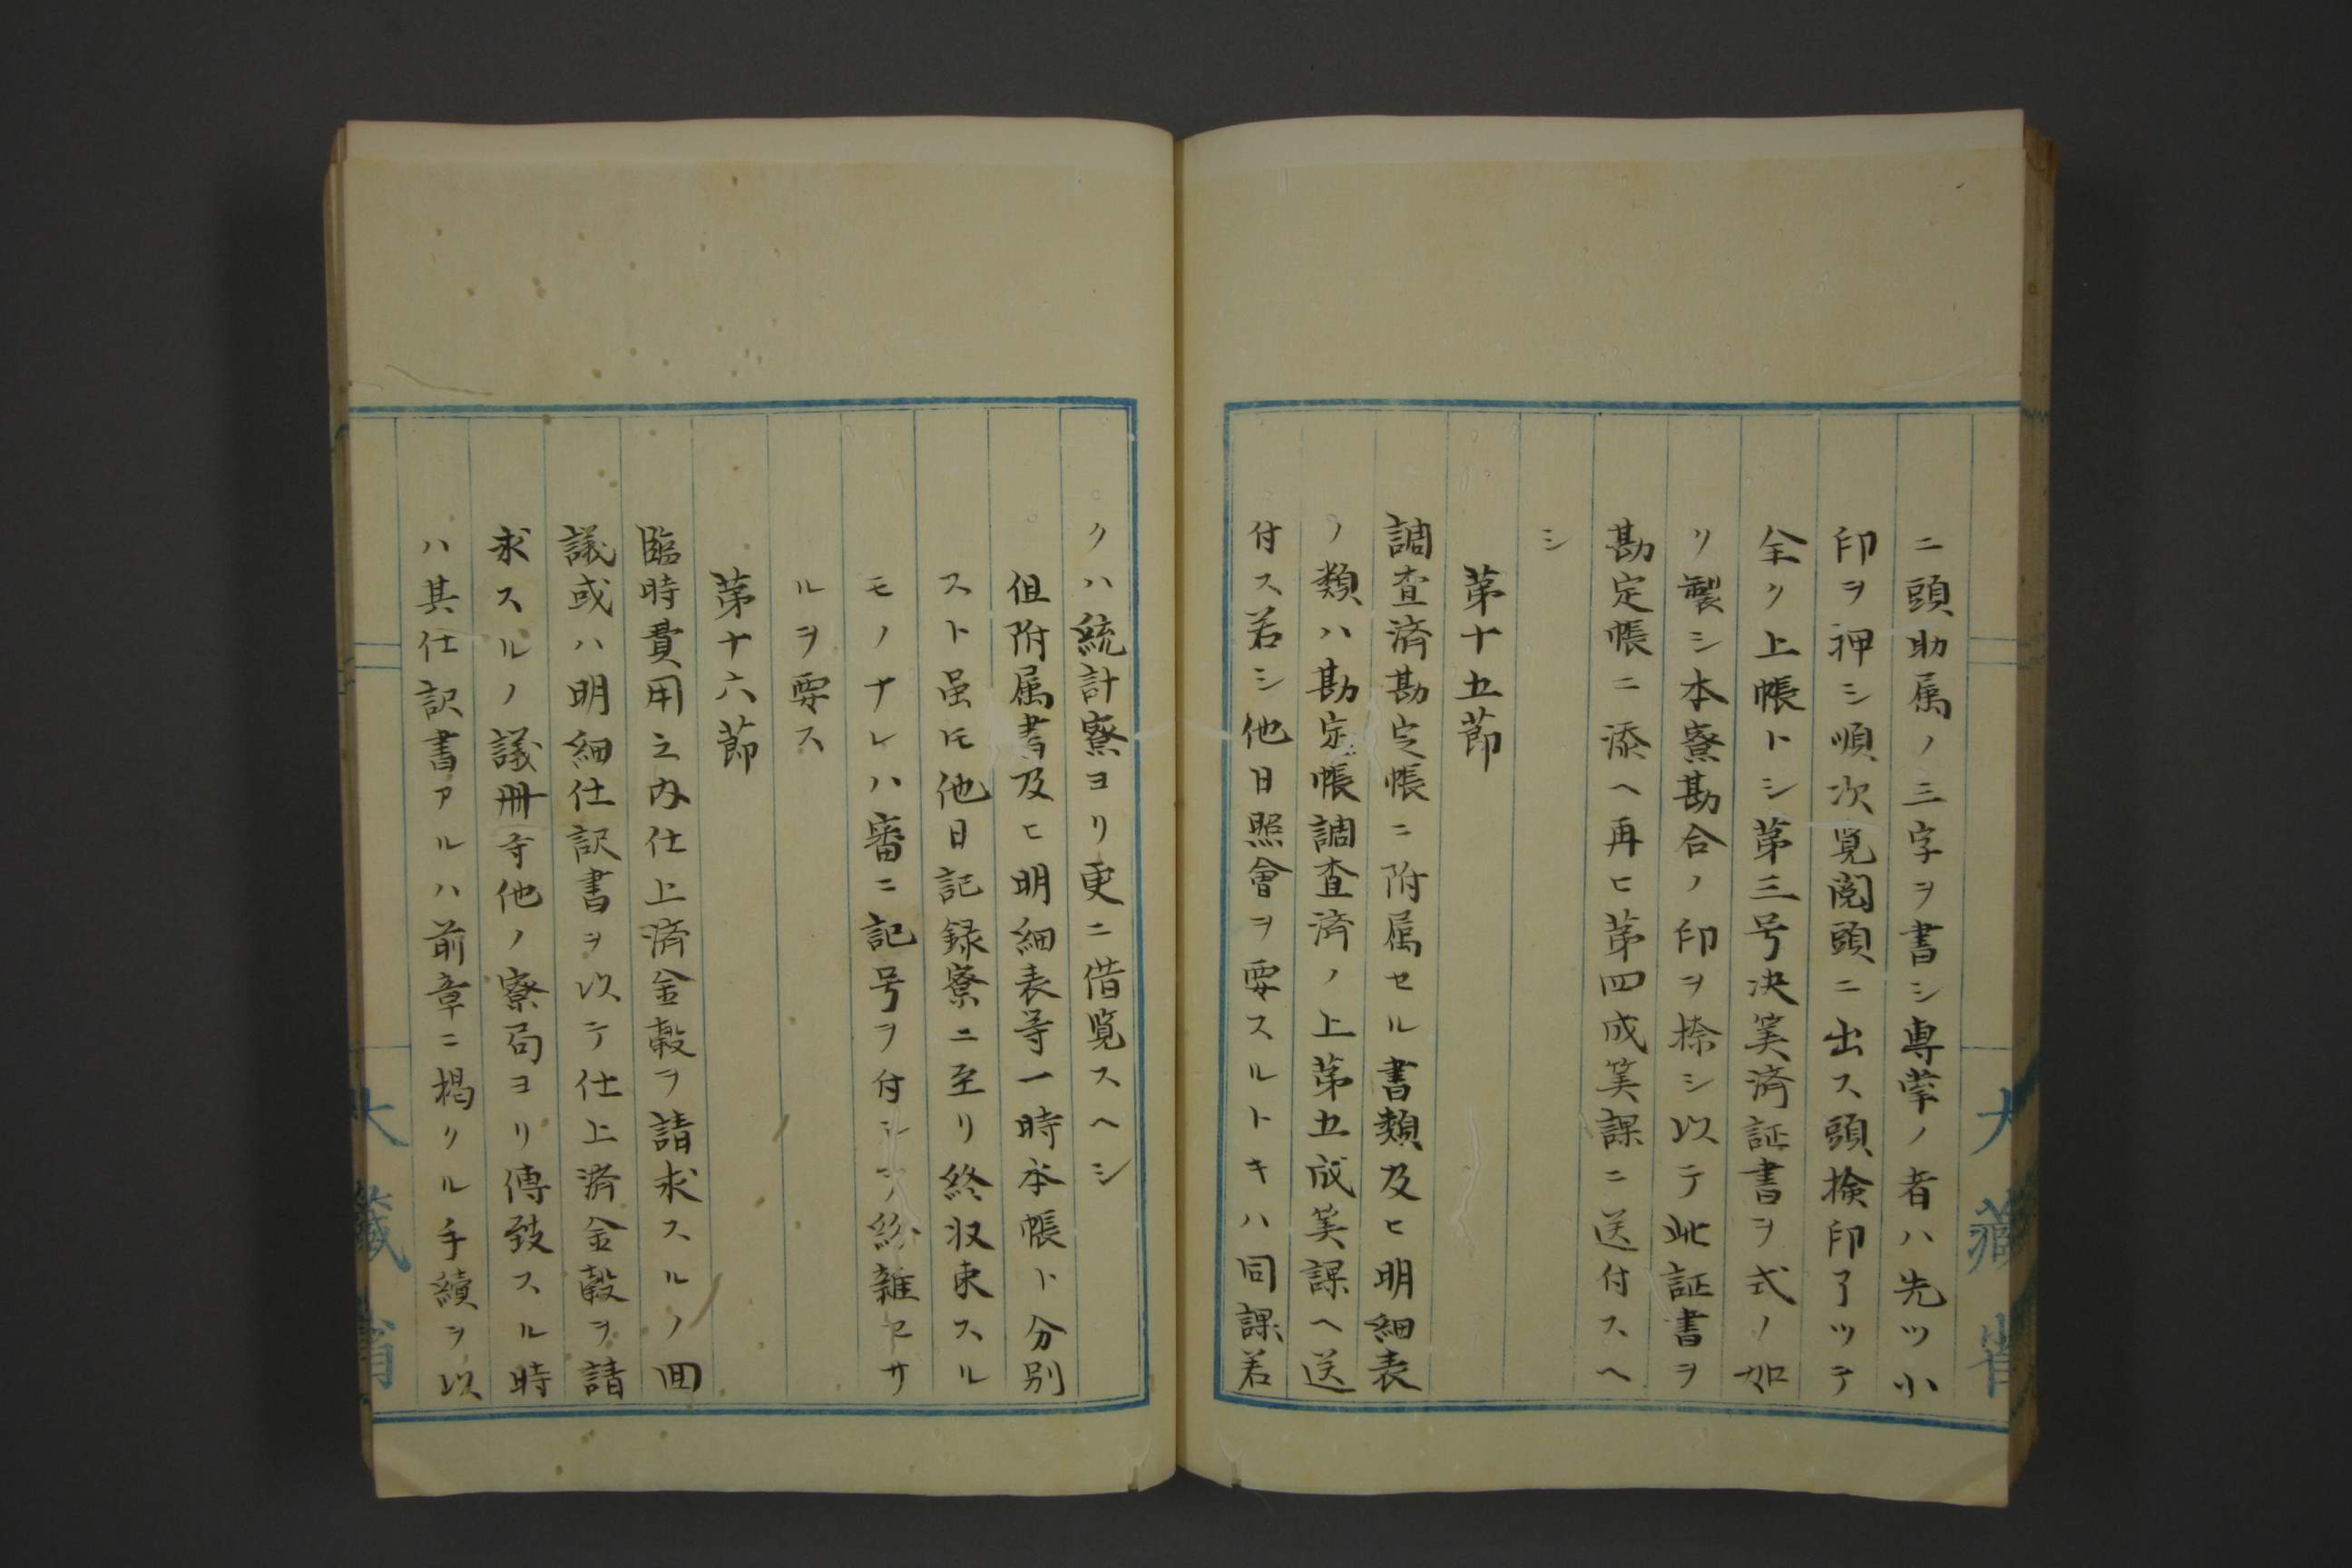 ニ頭助属ノ三字ヲ書シ専掌ノ者ハ先ツ小
印ヲ押シ順次覧閲頭ニ出ス頭検印了ツテ
全ク上帳トシ第三号决筭済証書ヲ式ノ如
リ製シ本寮勘合ノ印ヲ捺シ以テ此証書ヲ
勘定帳ニ添ヘ再ヒ第四成筭課ニ送付スヘ
シ
第十五節
調査済勘定帳ニ附属セル書類及ヒ明細表
ノ類ハ勘定帳調査済ノ上第五成筭課ヘ送
付ス若シ他日照會ヲ要スルトキハ同課若
クハ統計寮ヨリ更ニ借覧スヘシ
但附属書及ヒ明細表等一時本帳ト分別
スト虽𪜈他日記録寮ニ至リ終収束スル
モノナレハ審ニ記号ヲ付シテ紛雑セサ
ルヲ要ス
第十六節
臨時費用之内仕上済金穀ヲ請求スルノ回
議或ハ明細仕訳書ヲ以テ仕上済金穀ヲ請
求スルノ議冊寺他ノ寮局ヨリ傳致スル時
ハ其仕訳書アルハ前章ニ掲クル手續ヲ以
大藏省
大藏省